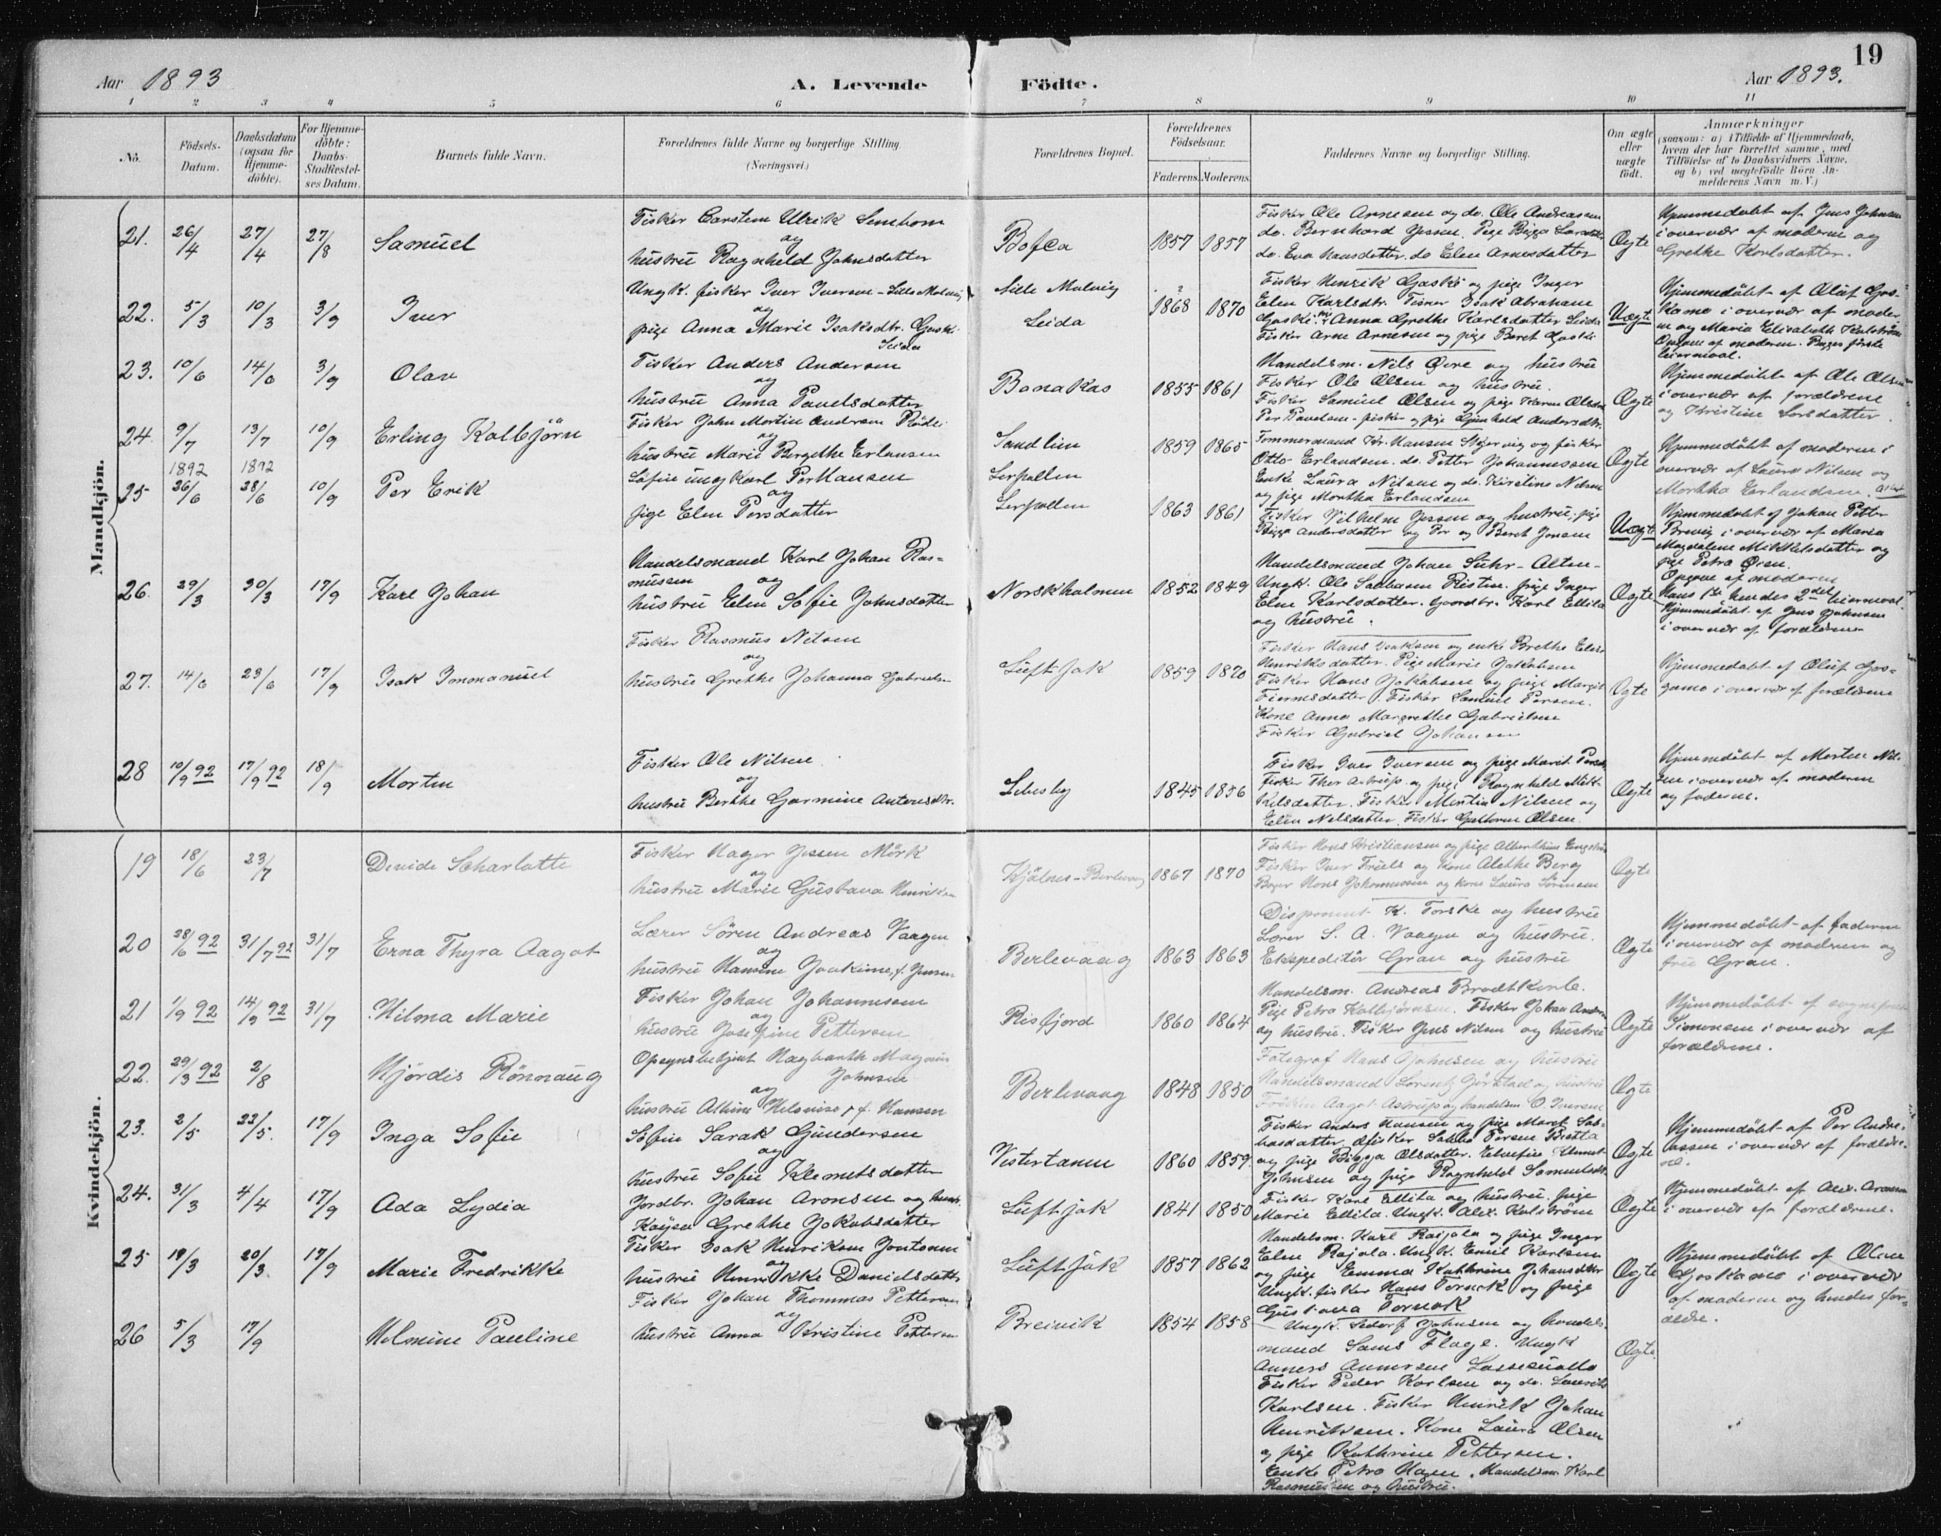 19
Aar 1893
A. Levende
Födte.
Aar 1893.
1 2 3 4 5 6 7 8 9 10 11
No.
Födsels-
Datum.
Daabsdatum
(ogsaa for
Hjemme-
döbte).
For Hjemme-
döbte:
Daabs-
Stadfæstel-
ses Datum.
Barnets fulde Navn.
Forældrenes fulde Navne og borgerlige Stilling
(Næringsvei.)
Forældrenes Bopæl.
Forældrenes
Födselsaar.
Faderens. Moderens.
Faddernes Navne og borgerlige Stilling.
Om ægte
eller
uægte
født.
Anmærkninger
(saasom: a) i Tilfælde af Hjemmedaab,
hvem der har forrettet samme, med
Tilföielse af to Daabsvidners Navne,
og b) ved uægtefödte Börn An-
melderens Navn m. V.)
Mandkjön.
21. 26/4 27/4 27/8 Samuel
Fisker Carsten Ulrik
og
hustru Ragnhild Johnsdatter
1857 1857
Fisker Ole Arnesen og do. Ole Andreassen
do. Bernhard Jessen. Pige
do. Eva Hansdatter. do Elen Arnesdatter
Ægte
Hjemmedöbt af Jens Johnsen
i overvær af moderen og
Grethe Karlsdatter.
22. 5/3 10/3 3/9 Iver
Ungk. fisker Iver Iversen - Lille Molvig
og
pige Anna Marie Isaksdtr.
Seida
Lille Molvig
Seida
1868 1870
Fisker Henrik Gaski og pige Inger
Elen Karlsdtr. Fisker Isak Abraham
Anna Grethe Karlsdatter Seida
Fisker Arne Arnesen og pige Beret
Uægte
Hjemmedöbt af Oluf
i overvær af moder
n og Maria Elisabeth
Opgave af moderen. Begges første
leiermaal.
23. 10/6 14/6 3/9 Olav
Fisker Anders Andersen
og
hustru Anna Paulsdatter
Bonakas
1855 1861
Handelsm. Nils Øvre og hustru
Fisker Ole Olsen og hustru.
Fisker Samuel Olsen og pige Karen
Per Paulsen - fisker og pige
Ægte
Hjemmedöbt af Ole Olsen
i overvær af forældrene
og Kristine Larsdatter.
24 9/7 13/7 10/9 Erling Kolbjörn
Fisker John Martin Andersen Röde
og
hustru Marie Bergithe Erlansen
Sandlien
1859 1865
Tömmermand Hans Hansen og fisker
Otto Erlandsen. do. Petter Johannessen
Enke Laura Nilsen og do. Kirstine Nilsen
og pige Martha Erlandsen
Ægte
Hjemmedöbt af moderen i
overvær af Laura Nilsen og
Martha Erlandsen.
25 1892 26/6 1892 28/6 10/9 Per Erik
ungkarl Per Hansen
og
pige Elen Persdatter
Lerpollen
Lerpollen
1863 1861
Fisker Vilhelm Jessen og hustru, pige
Andersdatter og Per og Beret Jonsen
Uægte
Hjemmedöbt af Johan Petter
Brevig i overvær af Maria
Magdalena Mikkelsdatter og
pige Petra Øren.
Opgave af moderen
Hans 1ste hendes 2det leiermaal.
26. 29/3 30/3 17/9 Karl Johan
Handelsmand Karl Johan Ras-
mussen
og
hustru Elen Sofie Johnsdatter
Norskholmen
1852 1849
Handelsmand Johan Suhr - Alten -
Ungk. Ole Ristin. pige Inger
Elen Karlsdatter. Gaardbr. Karl Ellila
og hustru.
Ægte
Hjemmedöbt af Jens Johnsen
i overvær af forældrene
27. 14/6 23/6 17/9 Isak Immanuel
Fisker Rasmus Nilsen
og
hustru Grethe Johanna
Luftjok
1859 1870
Fisker Hans Isaksen og enke Brethe Elise
Henriksdatter. Pige Marie Jakobsen
Fisker Hans Jakobsen og pige Margit
Fisker Samuel Persen.
Kone Anna Margrethe Gabrielsen
Fisker Gabriel Johansen
Ægte
Hjemmedöbt af Oluf
i overvær af forældrene
28 10/9 92 17/9 92 18/9 Morten
Fisker Ole Nilsen
og
hustru Berthe Garmine Antonsdtr.
Lebesby
1845 1856
Fisker Iver Iversen og pige Marit
Fisker Thor Astrup og pige Ragnhild Mik-
kelsdatter. Fisker Morten Nilsen og
Elen Nilsdatter. Fisker Guttorm Olsen.
Ægte
Hjemmedöbt af Morten Nil-
sen i overvær af moderen
og faderen.
Kvindekjön.
19 18/6 23/7 Devide Scharlotte
Fisker Hagor Jessen Mörk
og
hustru Marie Gustava Henriksen
Kjölnes - Berlevaag
1867 1870
Fisker Hans Kristiansen og pige Albertine
Fisker Iver Friels og kone Alethe Berg
Hans Johannessen og kone Laura Sörensen
Ægte
20 28/6 92 31/7 92 31/7 Erna Thyra Aagot
Lærer Sören Andreas Vaagen
og
hustru Hansine Joakime, f. Jensen
Berlevaag
1863 1863
Disponent K. Torske og hustru
Lærer S. A. Vaagen og hustru.
Ekspeditör Gran og hustru
Ægte
Hjemmedöbt af faderen
i overvær af moderen og
fru Gran.
21 1/9 92 14/9 92 31/7 Hilma Marie
Fisker Johan Johannesen
og
hustru Josefine Pettersen
Risfjord
1860 1864
Handelsm. Andreas Brodtkorb.
Pige Petra Kolbjörnsen. Fisker Johan
og hustru. Fisker Jens Nilsen og hustru
Ægte
Hjemmedöbt af
Simonsen i overvær af
forældrene.
22. 29/3 92 2/8 Hjördis Rönnaug
Opsynsbetjent Hagbarth Magnus
Johnsen
og
hustru Albine Helovise, f. Hansen
Berlevaag
1848 1850
Fotograf Hans Johnsen og hustru
Handelsmand Lorentz og hustru
Fröken Aagot Astrup og handelsm. O. Iversen
Ægte
23. 2/5 22/5. 17/9 Inga Sofie
Sarak Gundersen
og
hustru Sofie Klemetsdatter
Vestertanen
1860 1859.
Fisker Anders Hansen og pige Maret
Fisker Persen
og pige Olsdatter.
Johnsen og pige Ragnhild
Ægte
Hjemmedöbt af Per Andre-
assen i overvær af forældre-
ne.
24. 31/3 4/4 17/9 Ada Lydia
Jordbr. Johan Aronsen og hustr.
Kaisa Grethe Jakobsdatter
Luftjok
1841 1850
Fisker Karl Ellila og hustru. pige
Marie Ellila. Ungk. Alex.
Ægte
Hjemmedöbt af Alex. Aronsen
i overvær af forældrene.
25 18/3 20/3. 17/9 Marie Fredrikke
Fisker Isak Henriksen
og
hustru Henrikke Danielsdatter
Luftjok
1857 1862
Handelsm. Karl Rajala og pige Inger
Elen Rajala. Ungk. Emil Karlsen
og pige Emma Kathrine
Ungk. fisker Hans og pige
Gustava
Ægte
Hjemmedöbt af
i overvær
af moderen og hendes for-
ældre.
26 5/3 17/9 Helmine Pauline
Fisker Johan Thommas Pettersen
og
hustru Anna Kristine Pettersen
Breivik
1854 1858
Ungk. Johnsen og handels-
mand Sams Flage. Ungk
Fisker Peder Karlsen og do. Laurits
Karlsen. Fisker Henrik Johan
Henriksen. Kone Laura Olsen
og pige Kathrine Pettersen.
Enke Petra Hagen. Handelsm. Karl
Rasmussen og hustru.
Ægte